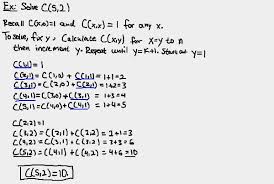 Ex: Solve C(5,2)
Recall C(x,0)=1 and C(x,x) = 1 for any x.
To solve, fix y, Calculate C(x,y) for x=y to n
then increment y. Repeat until y=k+1. Start at y=1
C(1,1) = 1
C(2,1) = C(1,0) + C(1,1) = 1+1=2
C(3,1) = C(2,0) + C(2,1) = 1+2=3
C(4,1) = C(3,0) + C(3,1) = 1+3=4
C(5,1) = C(4,0) + C(4,1) = 1+4=5
C(2,2) = 1
C(3,2) = C(2,1) + C(2,2) = 2+1=3
C(4,2) = C(3,1) + C(3,2) = 3+3=6
C(5,2) = C(4,1) + C(4,2) = 4+6=10
C(5,2)=10.